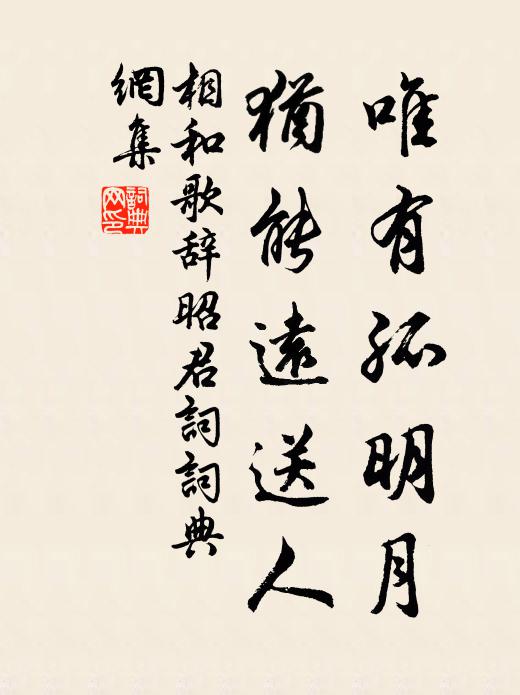 唯有孤明月
猶能遠送人
相和歌辞昭君詞詞典
網集
詞典
网印